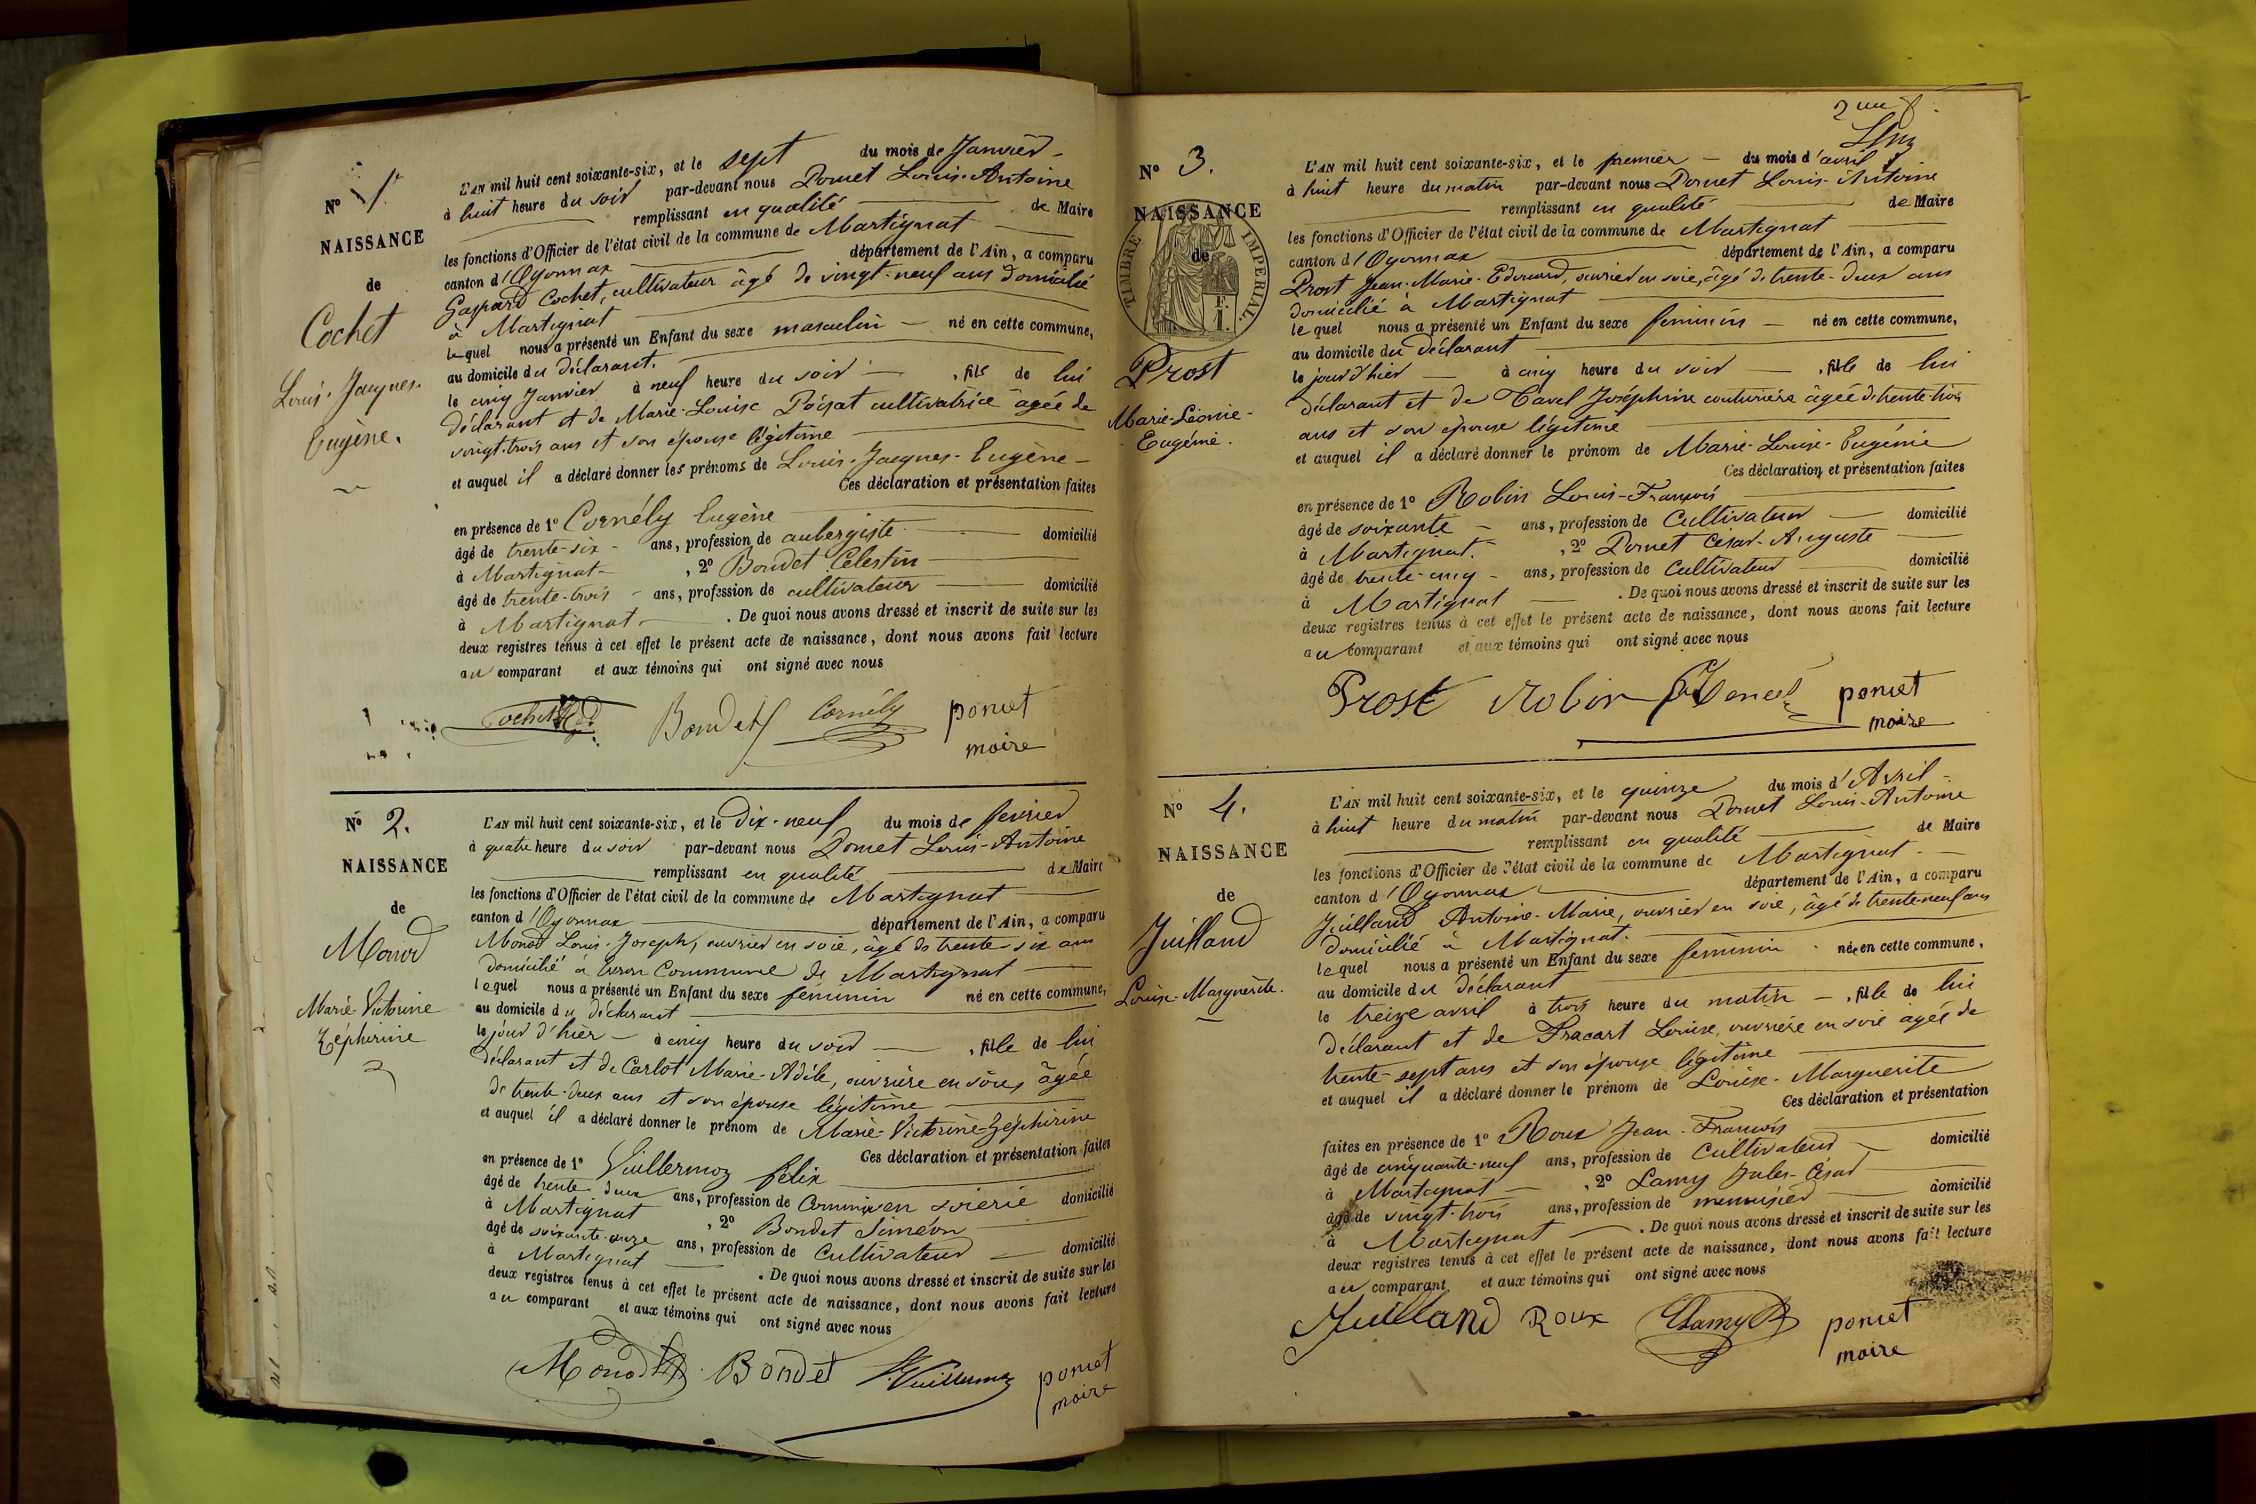 N° 1.
NAISSANCE
de
Cochet
Louis-Jacques-
Eugène.
L'AN mil huit cent soixante-six, et le sept du mois de Janvier
à huit heure du soir par-devant nous Poncet Louis-Antoine
remplissant en qualité de Maire
les fonctions d'Officier de l'état civil de la commune de Martignat
canton d'Oyonnax département de l'Ain, a comparu
Gaspard Cochet, cultivateur âgé de vingt-neuf ans domicilié
à Martignat
lequel nous a présenté un Enfant du sexe masculin né en cette commune,
au domicile du déclarant.
le cinq Janvier à neuf heure du soir , fils de lui
déclarant et de Marie-Louise Poisat cultivatrice âgée de
vingt-trois ans et son épouse légitime
et auquel il a déclaré donner les prénoms de Louis-Jacques-Eugène-
Ces déclaration et présentation faites
en présence de 1° Cornély Eugène
âgé de trente-six ans, profession de aubergiste domicilié
à Martignat , 2° Bondet Célestin
âgé de trente-trois ans, profession de cultivateur domicilié
à Martignat . De quoi nous avons dressé et inscrit de suite sur les
deux registres tenus à cet effet le présent acte de naissance, dont nous avons fait lecture
au comparant et aux témoins qui ont signé avec nous
Cochet Bondet Cornély poncet
maire
N° 2.
NAISSANCE
de
Monod
Marie-Victorine
Zéphirine
L'AN mil huit cent soixante-six, et le dix-neuf du mois de fevrier
à quatre heure du soir par-devant nous Poncet Louis-Antoine
remplissant en qualité de Maire
les fonctions d'Officier de l'état civil de la commune de Martignat
canton d'Oyonnax département de l'Ain, a comparu
Monod Louis-Joseph, ouvrier en soie, âgé de trente-six ans
domicilié à Commune de Martignat
lequel nous a présenté un Enfant du sexe féminin né en cette commune,
au domicile du déclarant
le jour d'hièr à cinq heure du soir , fille de lui
déclarant et de Carlot Marie-Adèle, ouvrière en soie, âgée
de trente-deux ans et son épouse légitime
et auquel il a déclaré donner le prénom de Marie-Victorine-Zéphirine
Ces déclaration et présentation faites
en présence de 1° Vuillermoz félix
âgé de trente deux ans, profession de Commis en soierie domicilié
à Martignat , 2° Bondet Siméon
âgé de soixante-onze ans, profession de Cultivateur domicilié
à Martignat . De quoi nous avons dressé et inscrit de suite sur les
deux registres tenus à cet effet le présent acte de naissance, dont nous avons fait lecture
au comparant et aux témoins qui ont signé avec nous
Monod Bondet Vuillermoz poncet
maire
2me f.
N° 3.
NAISSANCE
de
TIMBRE IMPERIAL.
Prost
Marie-Léonie-
Eugénie.
L'AN mil huit cent soixante-six, et le premier du mois d'avril
à huit heure du matin par-devant nous Poncet Louis-Antoine
remplissant en qualité de Maire
les fonctions d'Officier de l'état civil de la commune de Martignat
canton d'Oyonnax département de l'Ain, a comparu
Prost Jean-Marie-Edouard, ouvrier en soie, âgé de trente-deux ans
domicilié à Martignat
lequel nous a présenté un Enfant du sexe feminin né en cette commune,
au domicile du déclarant
le jour d'hier à cinq heure du soir , fille de lui
déclarant et de Tavel Joséphine couturière âgée de trente-trois
ans et son épouse légitime
et auquel il a déclaré donner le prénom de Marie-Louise-Eugénie
Ces déclaration et présentation faites
en présence de 1° Robin Louis-François
âgé de soixante ans, profession de Cultivateur domicilié
à Martignat. , 2° Poncet César-Auguste
âgé de trente-cinq ans, profession de Cultivateur domicilié
à Martignat . De quoi nous avons dressé et inscrit de suite sur les
deux registres tenus à cet effet le présent acte de naissance, dont nous avons fait lecture
au comparant et aux témoins qui ont signé avec nous
Prost Robin Poncet poncet
maire
N° 4.
NAISSANCE
de
Juilland
Louise-Marguerite.
L'AN mil huit cent soixante-six, et le quinze du mois d'Avril
à huit heure du matin par-devant nous Poncet Louis-Antoine
remplissant en qualité de Maire
les fonctions d'Officier de l'état civil de la commune de Martignat
canton d'Oyonnax département de l'Ain, a comparu
Juilland Antoine-Marie, ouvrier en soie, âgé de trente-neuf ans
domicilié à Martignat.
lequel nous a présenté un Enfant du sexe féminin née en cette commune,
au domicile du déclarant
le treize avril à trois heure du matin , fille de lui
déclarant et de Fracart Louise, ouvrière en soie âgée de
trente-sept ans et son épouse légitime
et auquel il a déclaré donner le prénom de Louise-Marguerite
Ces déclaration et présentation
faites en présence de 1° Roux Jean-François
âgé de cinquante-neuf ans, profession de Cultivateur domicilié
à Martignat , 2° Lamy Jules-César
âgé de vingt-trois ans, profession de menuisier domicilié
à Martignat . De quoi nous avons dressé et inscrit de suite sur les
deux registres tenus à cet effet le présent acte de naissance, dont nous avons fait lecture
au comparant et aux témoins qui ont signé avec nous
Juilland Roux Lamy poncet
maire